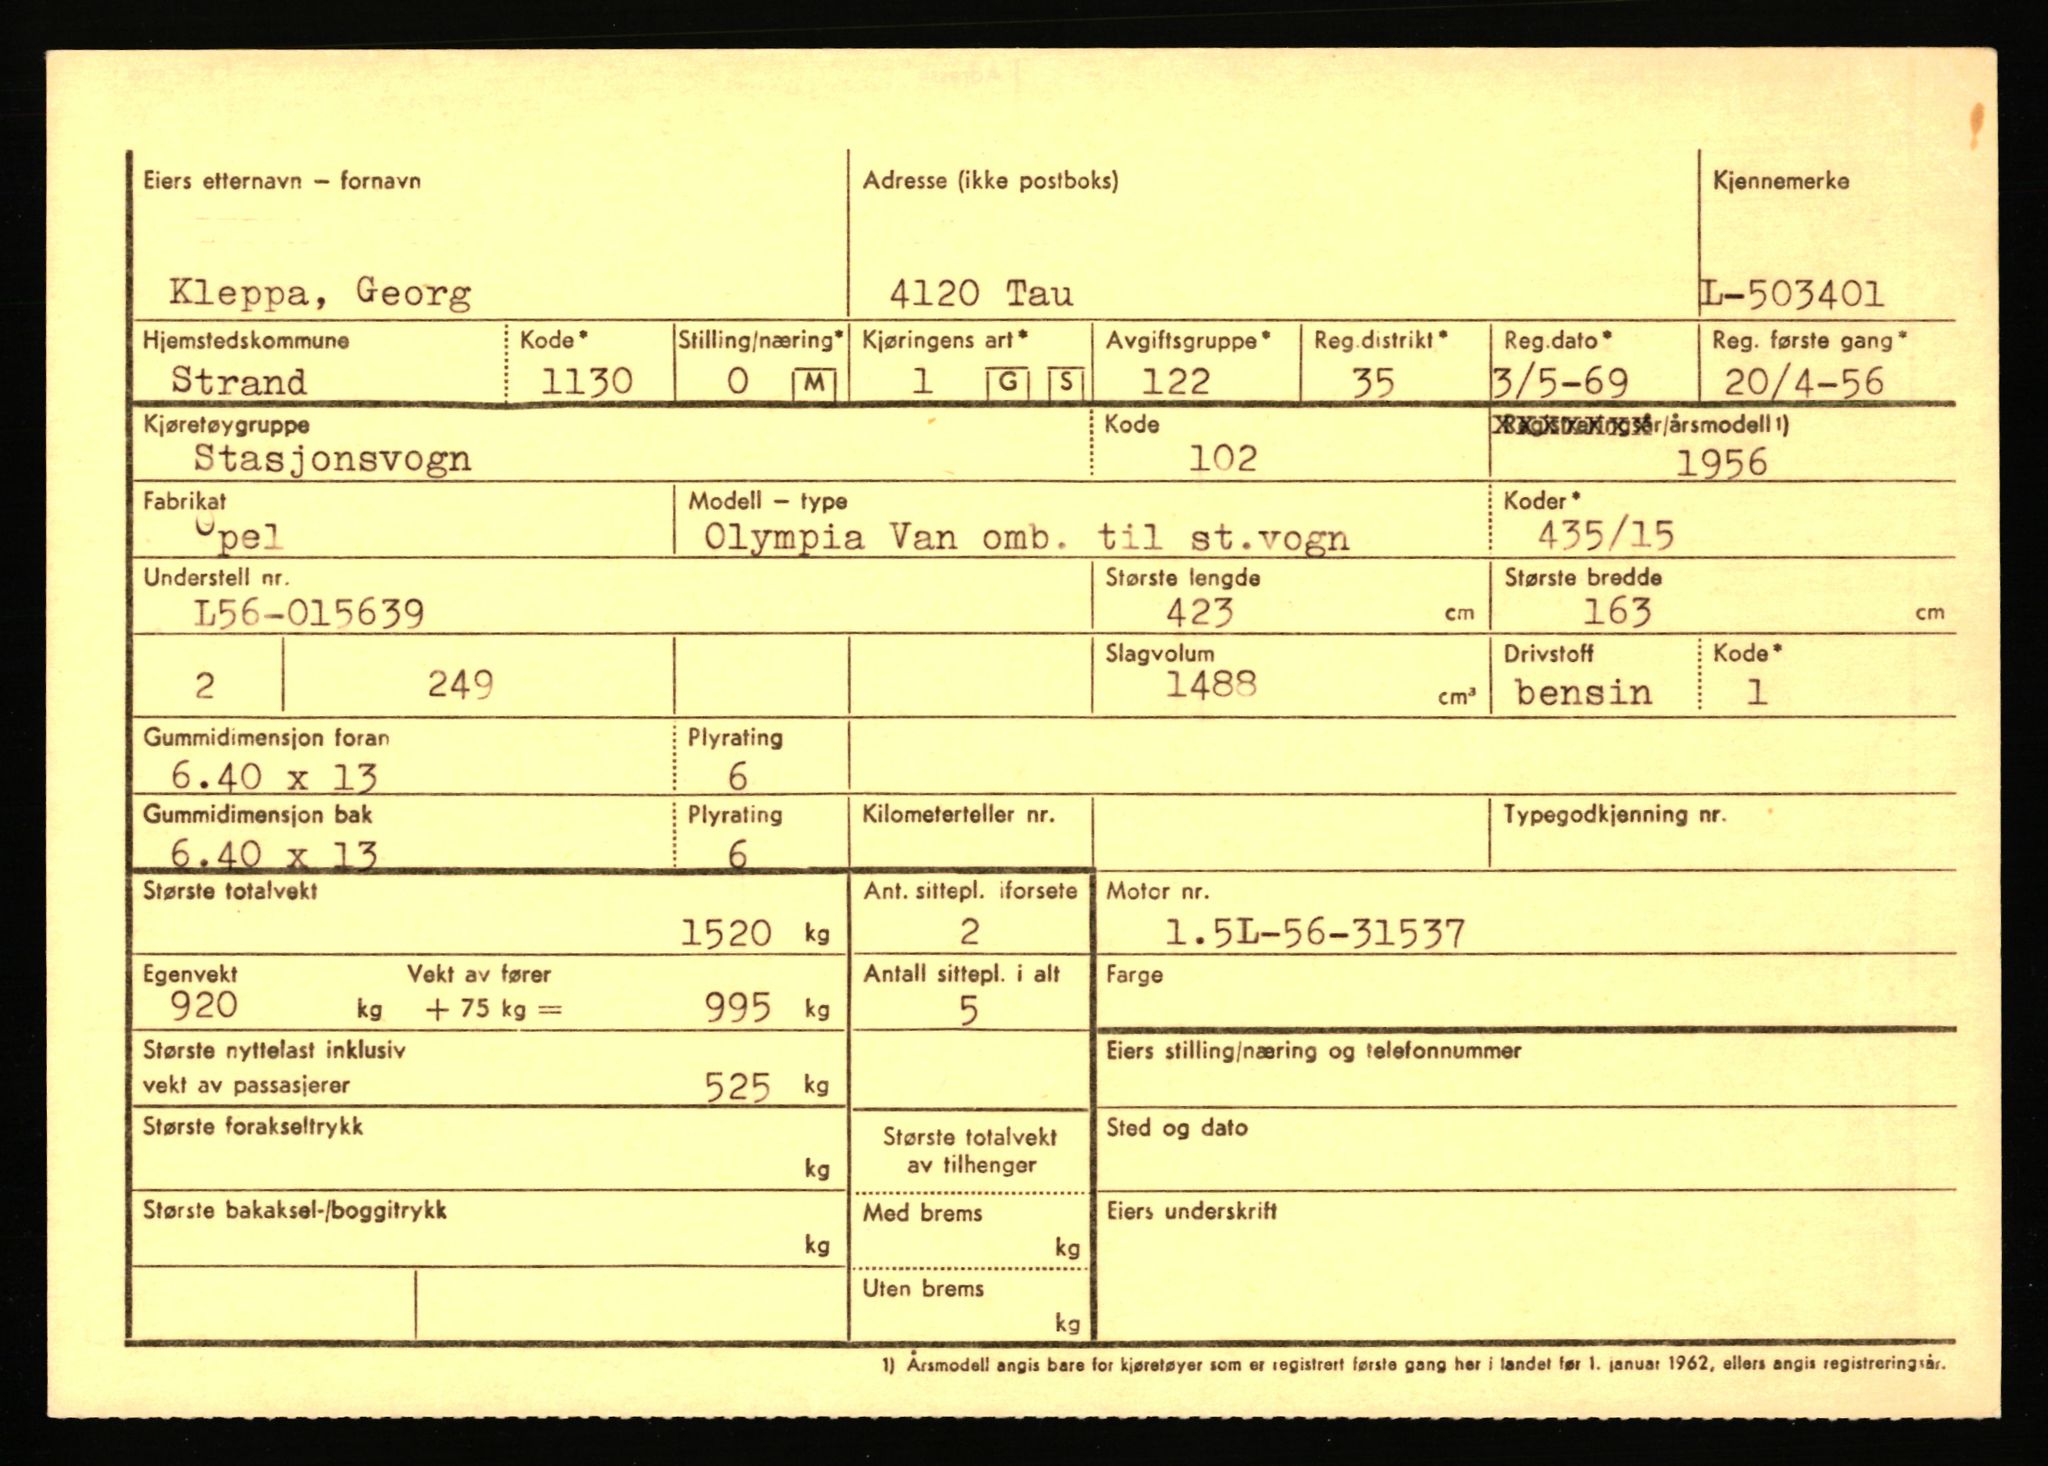 Eiers etternavn – fornavn Adresse (ikke postboks) Kjennemerke
Kleppa, Georg 4120 Tau L-503401
Hjemstedskommune Kode* Stilling/næring* Kjøringens art* Avgiftsgruppe* Reg.distrikt* Reg.dato* Reg. første gang*
Strand 1130 0 M 1 G S 122 35 3/5-69 20/4-56
Kjøretøygruppe Kode Registreringsår/årsmodell 1)
Stasjonsvogn 102 1956
Fabrikat Modell – type Koder*
Opel Olympia Van omb. til st.vogn 435/15
Understell nr. Største lengde Største bredde
L56-015639 423 cm 163 cm
Slagvolum Drivstoff Kode*
2 249 1488 cm³ bensin 1
Gummidimensjon foran Plyrating
6.40 x 13 6
Gummidimensjon bak Plyrating Kilometerteller nr. Typegodkjenning nr.
6.40 x 13 6
Største totalvekt Ant. sittepl. iforsete Motor nr.
1520 kg 2 1.5L-56-31537
Egenvekt Vekt av fører Antall sittepl. i alt Farge
920 kg + 75 kg = 995 kg 5
Største nyttelast inklusiv Eiers stilling/næring og telefonnummer
vekt av passasjerer 525 kg
Største forakseltrykk Største totalvekt Sted og dato
av tilhenger
kg
Største bakaksel-/boggitrykk Med brems Eiers underskrift
kg kg
Uten brems
kg
1) Årsmodell angis bare for kjøretøyer som er registrert første gang her i landet før 1. januar 1962, ellers angis registreringsår.